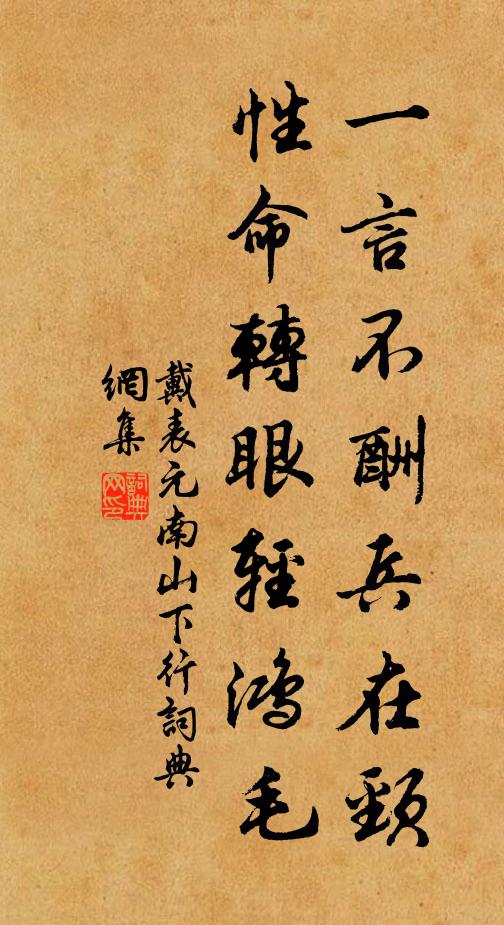 一言不酬兵在頸
性命轉眼輕鴻毛
戴表元南山下行詞典
網集
詞典
网印